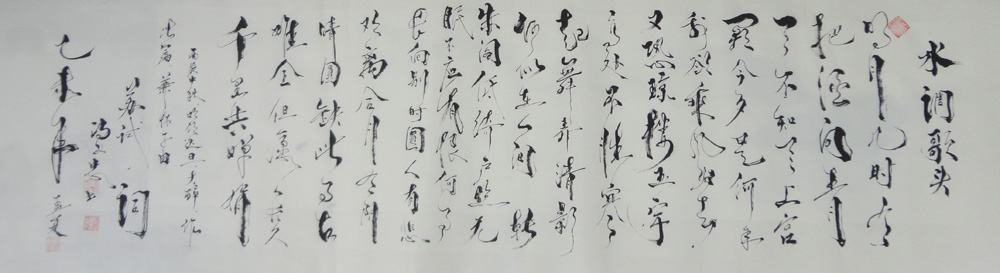 水调歌头
明月几时有
把酒问青
天不知天上宫
阙今夕是何年
我欲乘风归去
又恐琼楼玉宇
高处不胜寒
起舞弄清影
何似在人间 转
朱阁低绮户照无
眠不应有恨何事
长向别时圆人有悲
欢离合月有阴
晴圆缺此事古
难全但愿人长久
千里共婵娟
丙辰中秋欢饮达旦大醉作
此篇兼怀子由
苏轼词
书
乙未年